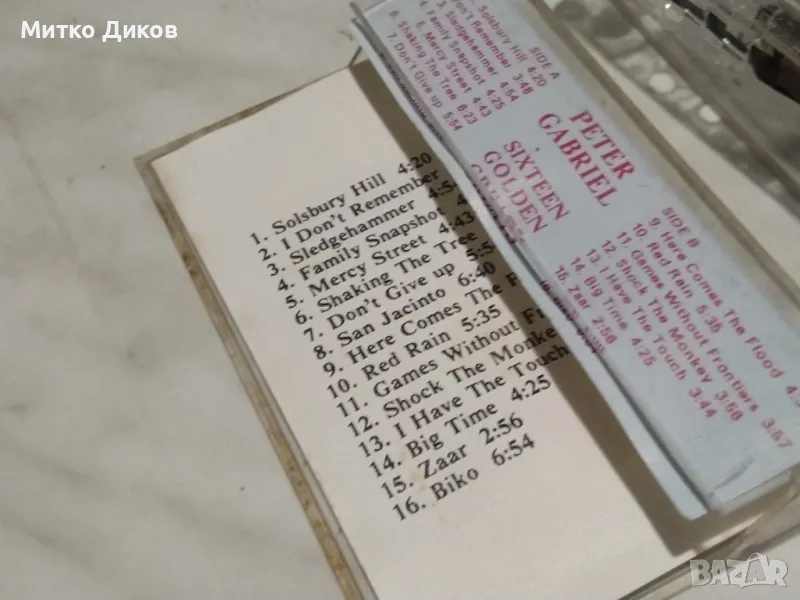 Митко Диков
1. Solsbury Hill 4:20
2. I Don't Remember
3. Sledgehammer 4:54
4. Family Snapshot
5. Mercy Street 4:43
6. Shaking The Tree
7. Don't Give up 5:54
8. San Jacinto 6:40
9. Here Comes The
10. Red Rain 5:35
11. Games Without
12. Shock The Monke
13. I Have The Touch
14. Big Time 4:25
15. Zaar 2:56
16. Biko 6:54
SIDE A
Solsbury Hill 4:20
Don't Remember 3:48
3. Sledgehammer 4:54
4. Family Snapshot 4:25
5. Mercy Street 4:43
6. Shaking The Tree 6:23
7. Don't Give up 5:54
PETER
GABRIEL
SIXTEEN
GOLDEN
SIDE B
9. Here Comes The Flood
10. Red Rain 5:35
11. Games Without Frontiers 3:57
12. Shock The Monkey 3:58
13. I Have The Touch 3:44
14. Big Time 4:25
15. Zaar 2:56
BAZAR